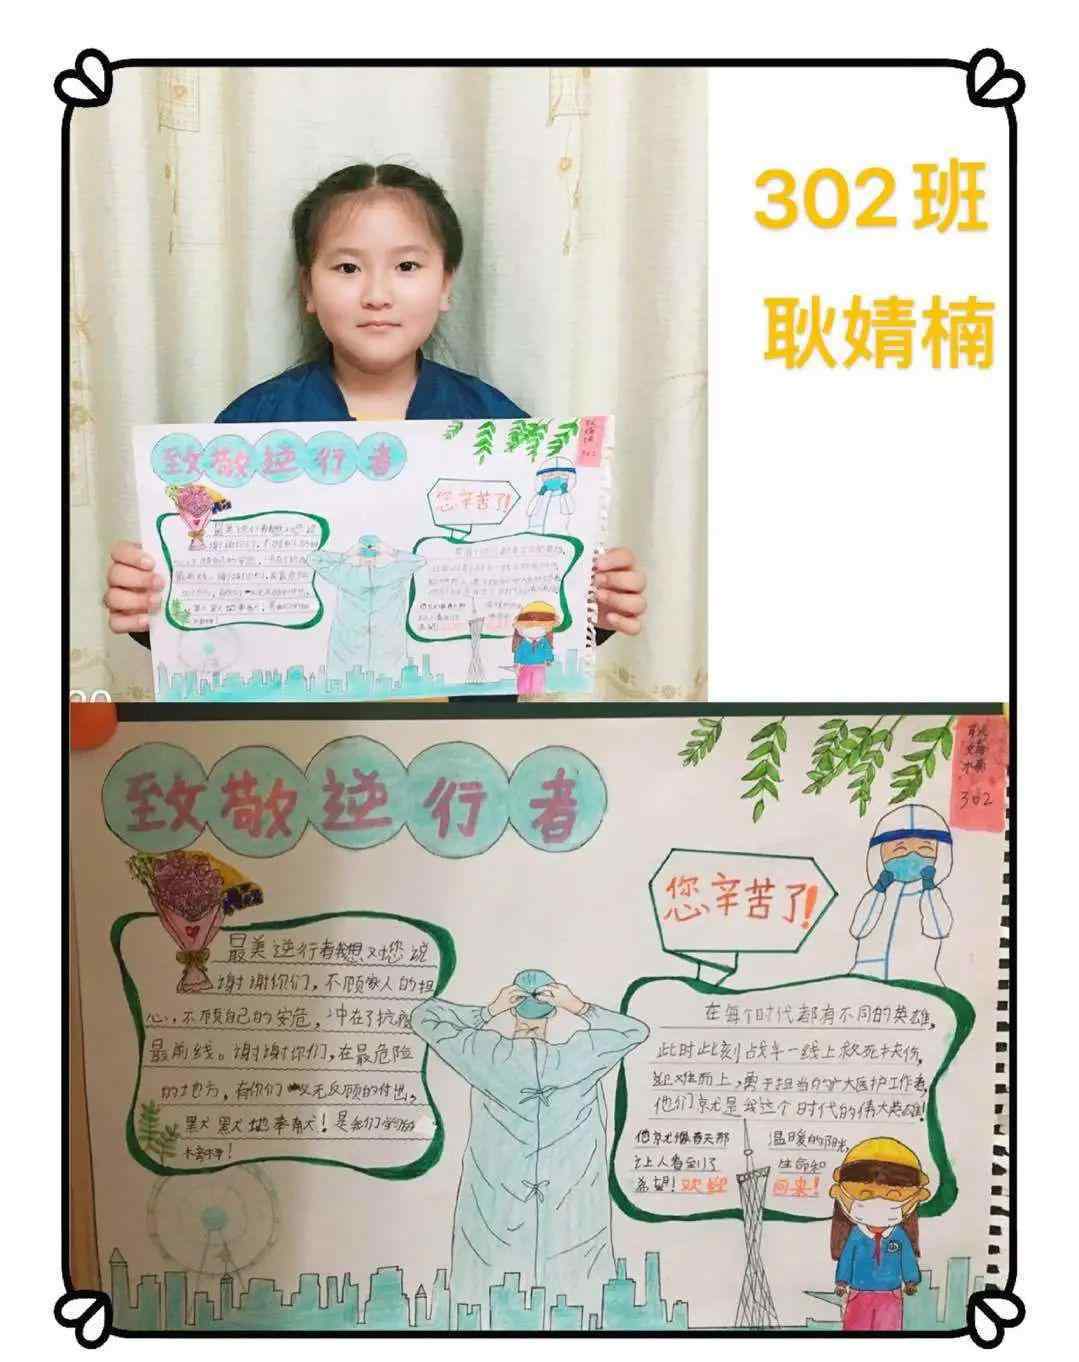 302班
耿婧楠
致敬逆行者
您辛苦了!
致敬逆行者
耿婧楠
302
您辛苦了!
最美逆行者我想对您说
谢谢你们，不顾家人的担
心，不顾自己的安危，冲在了抗疫
最前线。谢谢你们，在最危险
的地方，有你们义无反顾的付出，
默默地奉献！是我们学习的
榜样！
在每个时代都有不同的英雄，
此时此刻战斗一线上救死扶伤，
迎难而上，勇于担当的广大医护工作者，
他们就是我这个时代的伟大英雄！
他就像春天那 温暖的阳光，
让人看到了 生命和
希望！欢迎 回来！